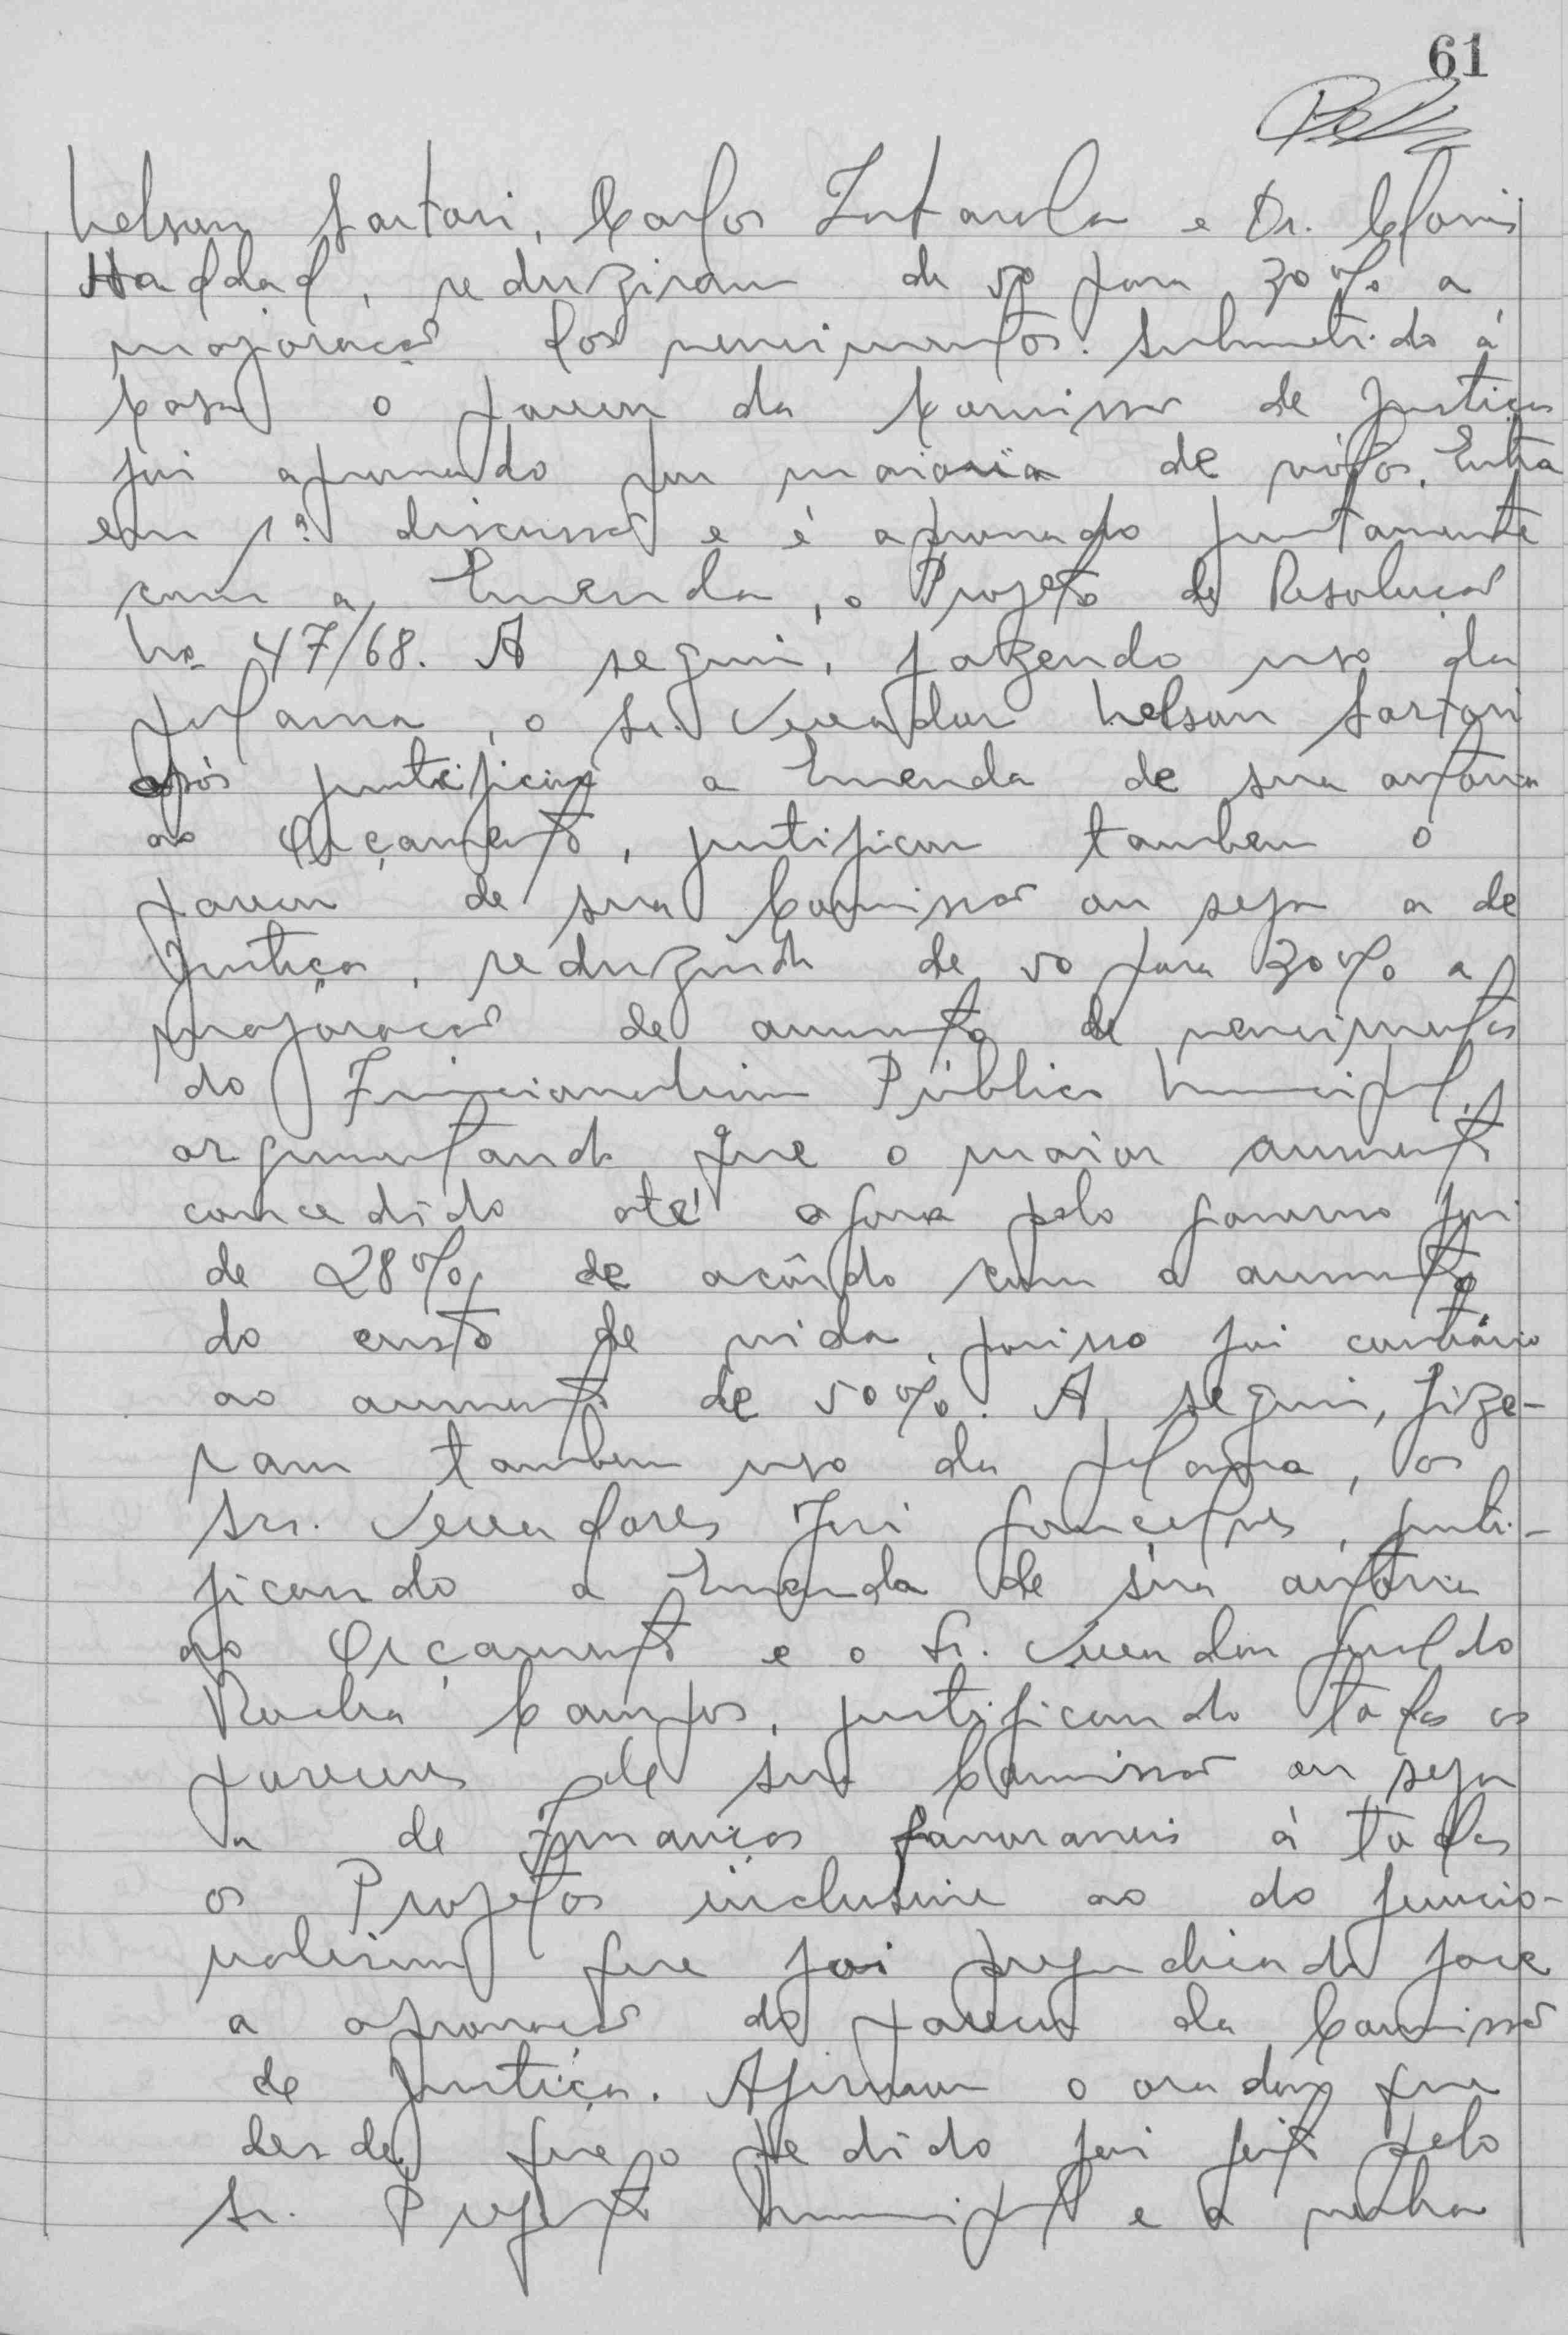 61
Nelson Sartori, Carlos Zutarola e Dr. Clovis
Haddad, reduziram de 50 para 30% a
majoração dos vencimentos. Submetido á
Casa o parecer da Comissão de Justiça
foi aprovado por maioria de vótos. Entra
em 1ª discussão e é aprovado juntamente
com a Emenda, o Projeto de Resolução
Nº 47/68. A seguir, fazendo uso da
palavra, o Sr. Vereador Nelson Sartori
após justificar a Emenda de sua autoria
ao Orçamento, justificou tambem o
parecer de sua Comissão ou seja a de
Justiça, reduzindo de 50 para 30% a
majoração de aumento de vencimentos
do Funcionalismo Público Municipal,
argumentando que o maior aumento
concedido até agora pelo governo foi
de 28% de acôrdo com o aumento
do custo de vida, porisso foi contrário
ao aumento de 50%. A seguir, fize-
ram tambem uso da palavra, os
Srs. Vereadores Jori Gonçalves, justi-
ficando a Emenda de sua autoria
ao Orçamento e o Sr. Vereador Geraldo
Rocha Campos, justificando todos os
pareceres de sua Comissão ou seja
a de Finanças favoraveis á todos
os Projetos inclusive ao do funcio-
nalismo que foi prejudicado face
a aprovação do parecer da Comissão
de Justiça. Afirmou o orador que
desde que o pedido foi feito pelo
Sr. Prefeito Municipal e a